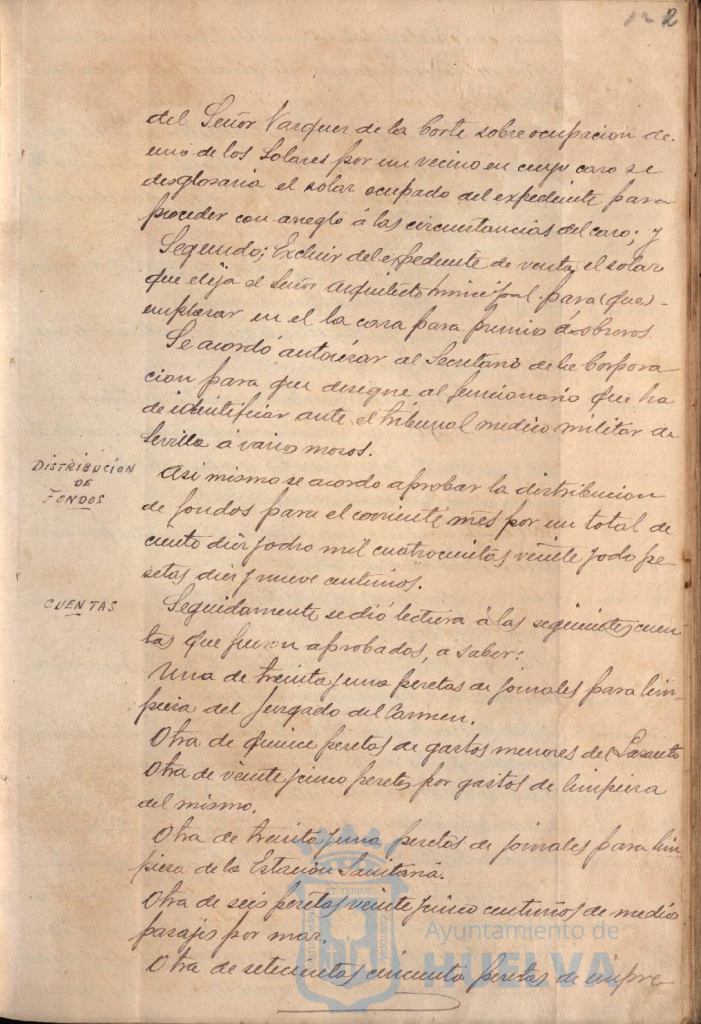 2
del Señor Vazquez de la Corte sobre ocupacion de
uno de los Solares por un vecino en cuyo caso se
desglosaria el solar ocupado del expediente para
proceder con arreglo á las circunstancias del caso; y
Segundo; Excluir del expediente de venta, el solar
que elija el Señor arquitecto municipal para (que)
emplazar en el la casa para premio á obreros.
Se acordó autorizar al Secretario de la Corpora-
cion para que designe al funcionario que ha
de identificar ante el tribunal medico militar de
Sevilla á varios mozos.
DISTRIBUCION
DE
FONDOS
Asi mismo se acordo aprobar la distribucion
de fondos para el corriente mes por un total de
ciento diez y ocho mil cuatrocientas veinte y dos pe-
setas diez y nueve centimos.
CUENTAS
Seguidamente se dió lectura á las siguientes cuen-
tas que fueron aprobadas, a saber:
Una de treinta y una pesetas de jornales para lim-
pieza del Juzgado del Carmen.
Otra de quince pesetas de gastos menores del Lazareto
Otra de veinte y cinco pesetas por gastos de limpieza
del mismo.
Otra de treinta y una pesetas de jornales para lim-
pieza de la Estación Sanitaria.
Otra de seis pesetas veinte y cinco centimos de medios
pasajes por mar.
Otra de setecientas cincuenta pesetas de impre-
Ayuntamiento de
HUELVA